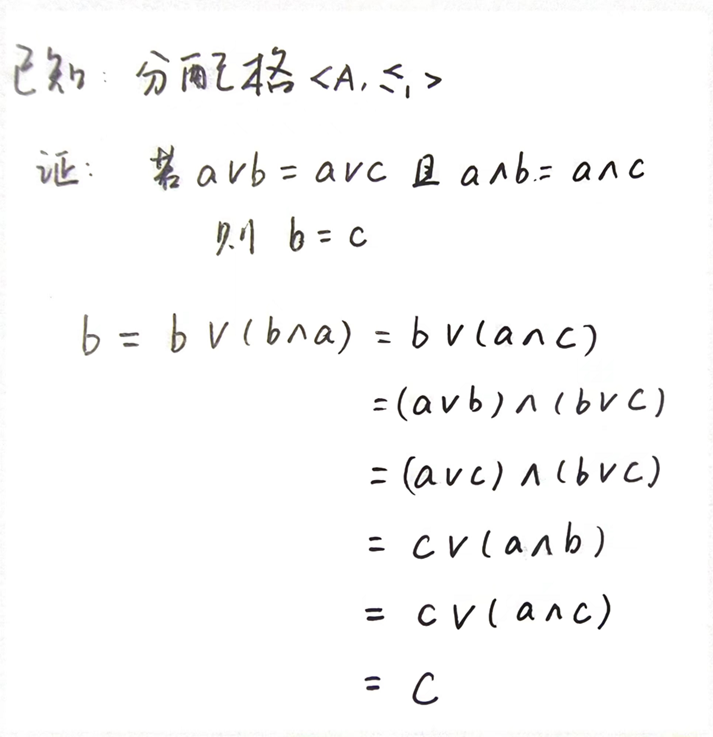 已知: 分配格 <A, ≤₁>
证: 若 a∨b = a∨c 且 a∧b = a∧c
则 b = c
b = b∨(b∧a) = b∨(a∧c)
=(a∨b)∧(b∨c)
=(a∨c)∧(b∨c)
= c∨(a∧b)
= c∨(a∧c)
= c